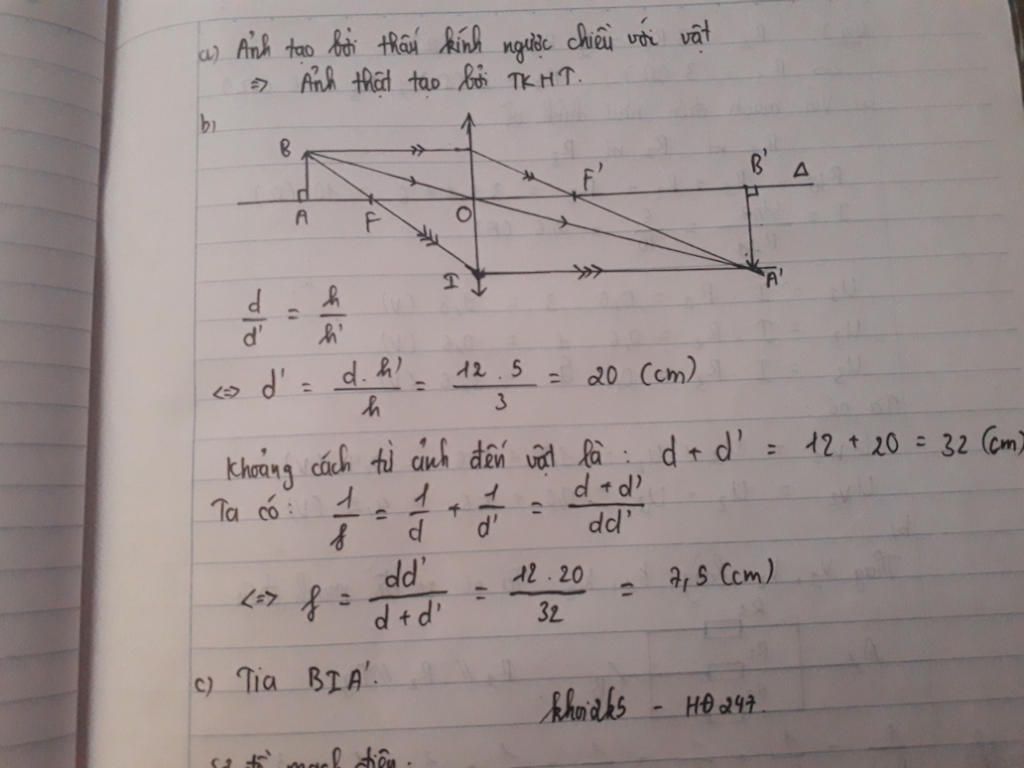 a) Ảnh tạo bởi thấu kính ngược chiều với vật
=> Ảnh thật tạo bởi TKHT.
b)
B B' Δ
F'
A F O
I A'
d/d' = h/h'
<=> d' = d.h'/h = 12.5/3 = 20 (cm)
Khoảng cách từ ảnh đến vật là: d + d' = 12 + 20 = 32 (cm)
Ta có: 1/f = 1/d + 1/d' = d + d'/dd'
<=> f = dd'/d + d' = 12.20/32 = 7,5 (cm)
c) Tia BIA'.
khoi2k5 - HĐ247.
mạch điện.